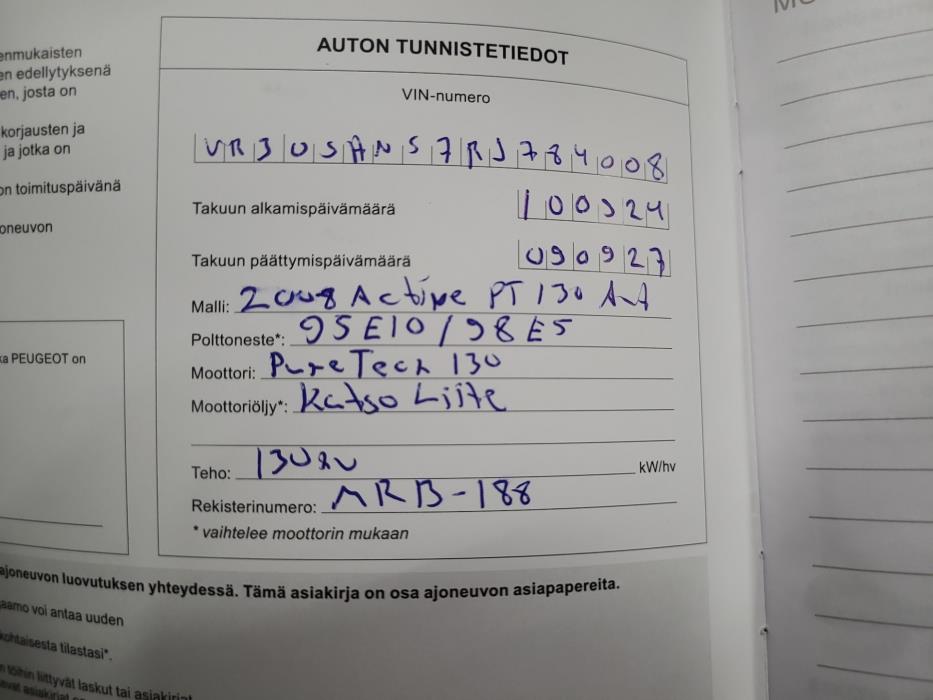 enmukaisten
en edellytyksenä
en, josta on
korjausten ja
ja jotka on
on toimituspäivänä
oneuvon
ka PEUGEOT on
AUTON TUNNISTETIEDOT
VIN-numero
VR3USANS7RJ784008
Takuun alkamispäivämäärä 100924
Takuun päättymispäivämäärä 090927
Malli: 2008 Active PT 130 AvA
Polttoneste*: 95E10/98E5
Moottori: PureTech 130
Moottoriöljy*: Katso Liite
Teho: 130hv kW/hv
Rekisterinumero: MRB-188
* vaihtelee moottorin mukaan
ajoneuvon luovutuksen yhteydessä. Tämä asiakirja on osa ajoneuvon asiapapereita.
aamo voi antaa uuden
kohtaisesta tilastasi*.
n töihin liittyvät laskut tai asiakirjat